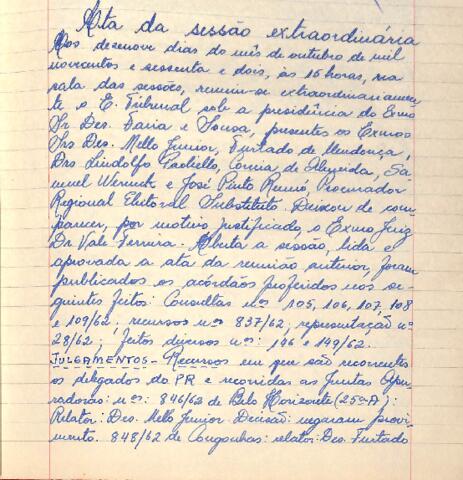 Ata da sessão extraordinária
Aos dezenove dias do mês de outubro de mil
novecentos e sessenta e dois, às 15 horas, na
sala das sessões, reuniu-se extraordinariamen-
te o E. Tribunal sob a presidência do Exmo
Sr Des. Faria e Sousa, presentes os Exmos
Srs Des. Mello Junior, Furtado de Mendonça,
Drs Lindolfo Paoliello, Correia de Almeida, Sa-
muel Werneck e José Pinto Renno, Procurador
Regional Eleitoral Substituto. Deixou de com-
parecer, por motivo justificado, o Exmo Juiz
Dr Vale Ferreira. Aberta a sessão, lida e
aprovada a ata da reunião anterior, foram
publicados os acórdãos proferidos nos se-
guintes feitos: Consultas nºs 105, 106, 107, 108
e 109/62; recursos nºs 837/62; representação nº
28/62; feitos diversos nºs: 146 e 149/62.
JULGAMENTOS - Recursos em que são recorrentes
os delegados do PR e recorridas as Juntas Apu-
radoras: nºs: 846/62 de Belo Horizonte (25ª A):
Relator: Des. Mello Junior - Decisão: negaram provi-
mento. 848/62 de Congonhas: relator: Des. Furtado